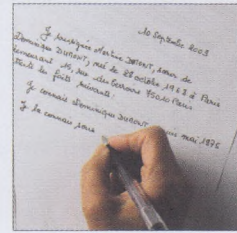 10 Septembre 2003
Je soussignée Martine DUPONT, sœur de
Dominique DUPONT, né le 28 octobre 1962 à Paris
demeurant 15, rue du 75010 Paris
les faits suivants :
Je connais Dominique DUPONT mai 1976
Je le connais sous